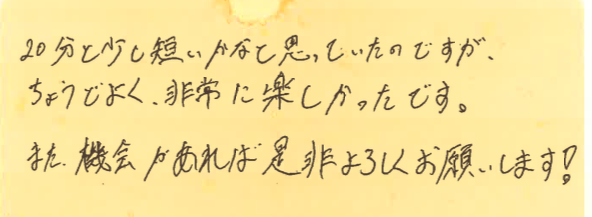 20分と少し短いかなと思っていたのですが、
ちょうどよく、非常に楽しかったです。
また、機会があれば是非よろしくお願いします!